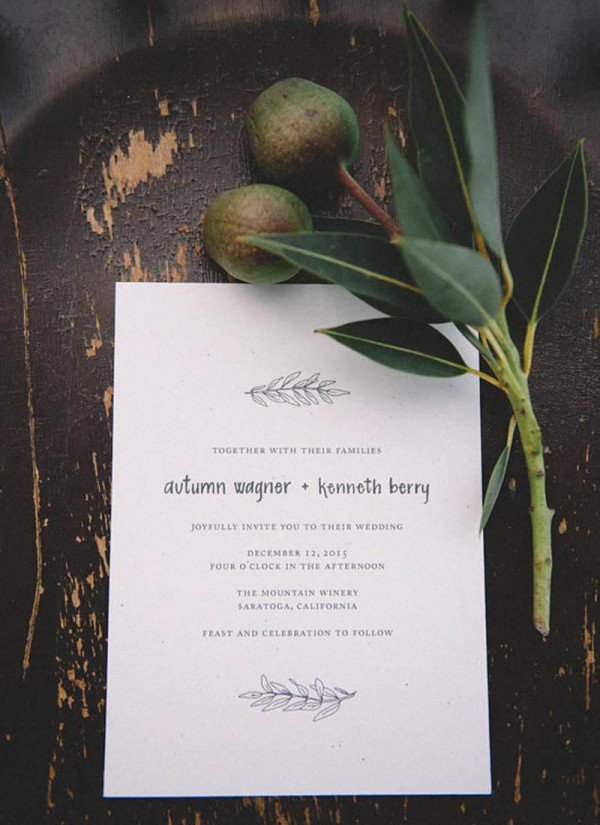 TOGETHER WITH THEIR FAMILIES
autumn wagner + kenneth berry
JOYFULLY INVITE YOU TO THEIR WEDDING
DECEMBER 12, 2015
FOUR O'CLOCK IN THE AFTERNOON
THE MOUNTAIN WINERY
SARATOGA, CALIFORNIA
FEAST AND CELEBRATION TO FOLLOW